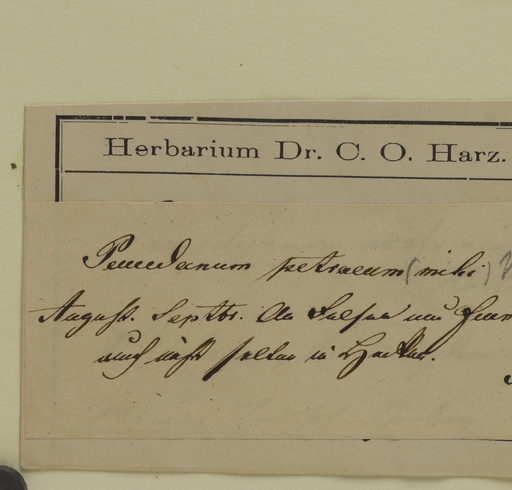 Herbarium Dr. C. O. Harz.
Peucedanum petraeum (mihi)
August. Septbr. An Felsen und
auch nicht selten in Hecken.